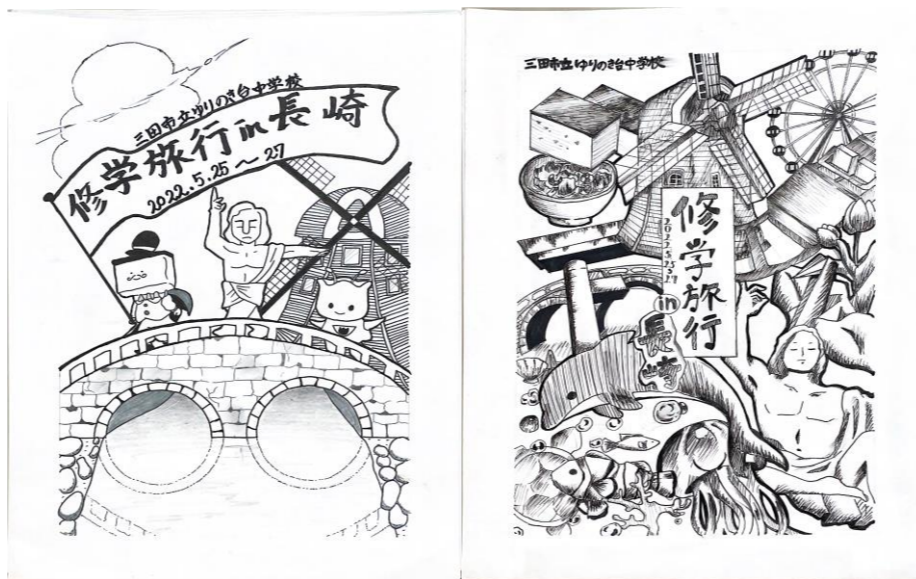 三田市立ゆりのき台中学校
修学旅行in長崎
2022.5.25〜27
三田市立ゆりのき台中学校
修学旅行
2022.5.25〜27
in
長崎